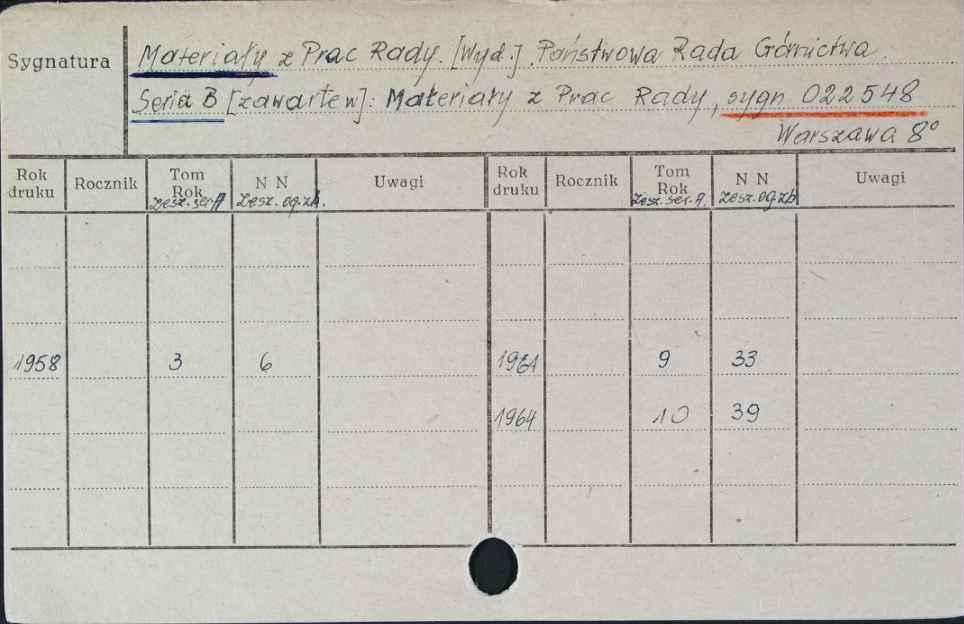 Sygnatura
Materiały z Prac Rady. [Wyd.] Państwowa Rada Górnictwa.
Seria B [zawarte w]: Materiały z Prac Rady, sygn 022548
Warszawa 8°
Rok druku Rocznik Tom Rok zesz. ser. A N N zesz. og. zb. Uwagi Rok druku Rocznik Tom Rok zesz. ser. A. N N zesz. og. zb Uwagi
1958 3 6 1961 9 33
1964 10 39